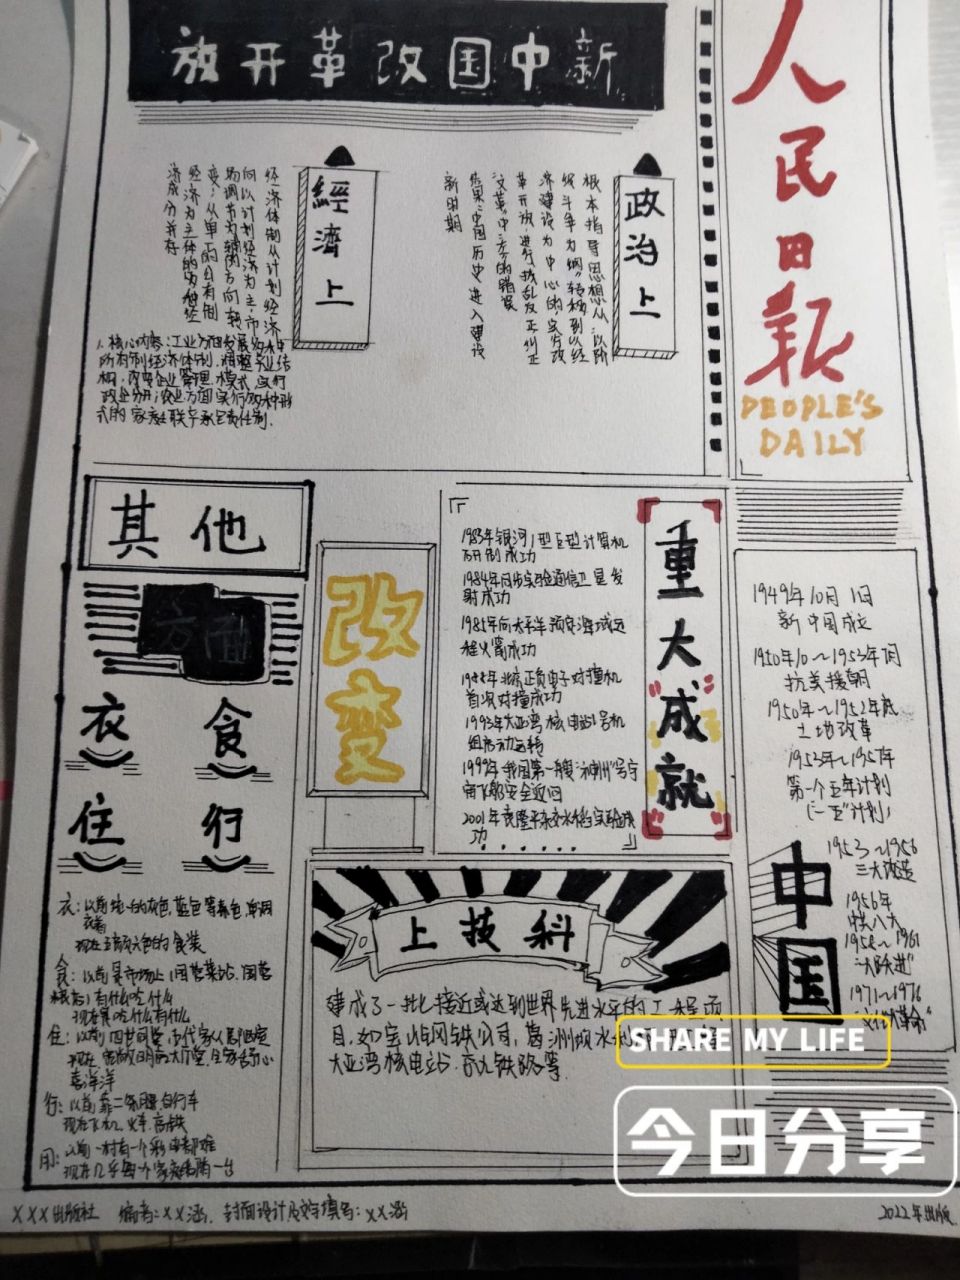 人民日报
PEOPLE'S
DAILY
新中国改革开放
政治上
根本指导思想从:以阶
级斗争为纲"转移到以经
济建设为中心的实行改
革开放,进行拨乱反正纠正
"文革"中的错误
结果:中国历史进入建设
新时期
經濟上
经济体制从计划经济
向以计划经济为主,市
场调节为辅的方向转
变;从单一的公有制
经济为主体的多种经
济成分并存
1.核心内容:工业方面发展多种
所有制经济体制,调整产业结
构,改变企业管理模式实行
政企分开;农业方面实行多种形
式的家庭联产承包责任制.
其他
方面
衣 食
住 行
衣:以前统一的灰色,蓝色等素色,单调
现在五颜六色的食装
食:以前菜市场上(国营菜站、国营
粮店)有什么吃什么
现在想吃什么有什么
住:以前四世同堂,
现在宽敞明亮大厅堂,全家舒心
喜洋洋
行:以前靠二条腿自行车
现在飞机,火车,高铁
用:以前一村有一个彩电都难
现在几乎每个家庭都有一台
改变
重大成就
1983年银河1型巨型计算机
研制成功
1984年同步实验通信卫星发
射成功
1985年向太平洋预定海域远
程火箭成功
1988年北京正负电子对撞机
首次对撞成功
1993年大亚湾核电站1号机
组启动运转
1999年我国第一艘"神州"号宇
宙飞船安全返回
2001年袁隆平杂交水稻实验成
功......
科技上
建成了一批接近或达到世界先进水平的工程项
目,如宝山钢铁公司,葛洲坝水利
大亚湾核电站.京九铁路等.
1949年10月1日
新中国成立
1950年10~1953年7月
抗美援朝
1950年~1952年底
土地改革
1953年~1957年
第一个五年计划
(一五"计划)
中国
1953~1956
三大改造
1956年
中共八大
1958~1961
"大跃进"
1971~1976
"文化大革命"
SHARE MY LIFE
今日分享
XXX出版社 编者:XX涵. 封面设计及文字填写:XX涵
2022年出版.